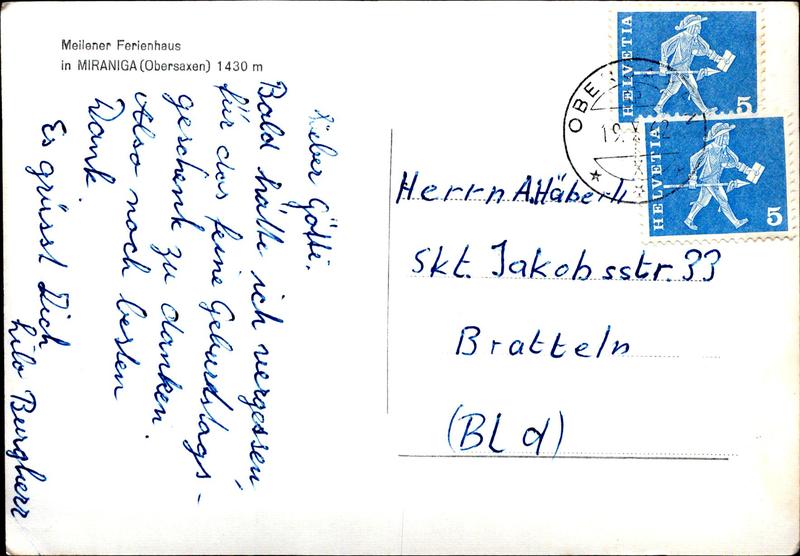 Meilener Ferienhaus
in MIRANIGA (Obersaxen) 1430 m
Lieber Götti.
Bald hätte ich vergessen,
für das feine Geburdstags-
geschenk zu danken.
Also noch besten
Dank.
Es grüsst Dich
Lilo Burgherr
HELVETIA
5
HELVETIA
5
OBER
19.
Herrn A. Häberli
Skt. Jakobsstr. 33
Bratteln
(BLd)